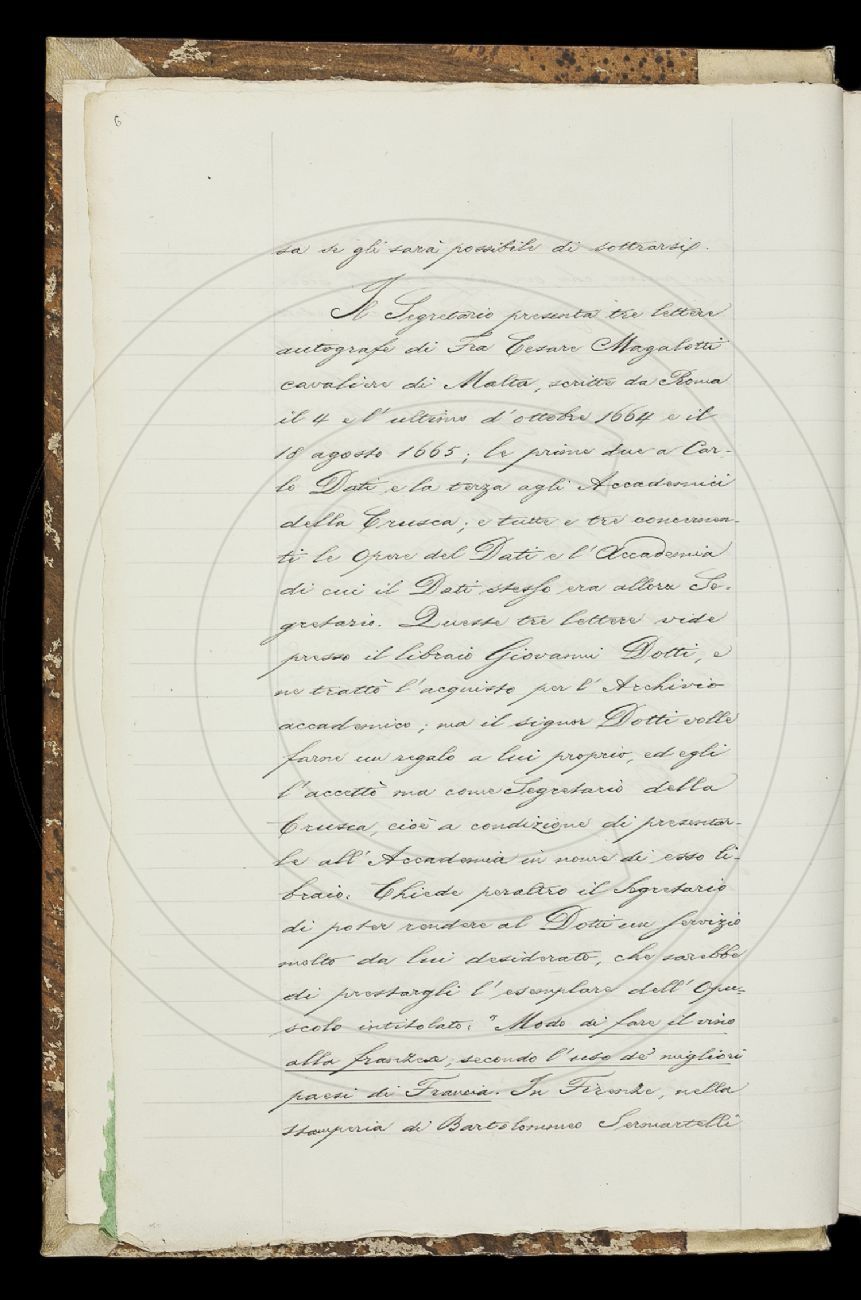 6
sa se gli sarà possibile di sottrarsi.
Il Segretario presenta tre lettere
autografe di Fra Cesare Magalotti
cavaliere di Malta, scritte da Roma
il 4 e l'ultimo d'ottobre 1664 e il
18 agosto 1665; le prime due a Car-
lo Dati e la terza agli Accademici
della Crusca; e tutte e tre concernen-
ti le Opere del Dati e l'Accademia
di cui il Dati stesso era allora Se-
gretario. Queste tre lettere vide
presso il libraio Giovanni Dotti, e
ne trattò l'acquisto per l'Archivio
accademico; ma il signor Dotti volle
farne un regalo a lui proprio, ed egli
l'accettò ma come Segretario della
Crusca, cioè a condizione di presentar-
le all'Accademia in nome di esso li-
braio. Chiede peraltro il Segretario
di poter rendere al Dotti un servizio
molto da lui desiderato, che sarebbe
di prestargli l'esemplare dell'Opu-
scolo intitolato: "Modo di fare il vino
alla franzese, secondo l'uso de' migliori
paesi di Francia. In Firenze, nella
stamperia di Bartolommeo Sermartelli